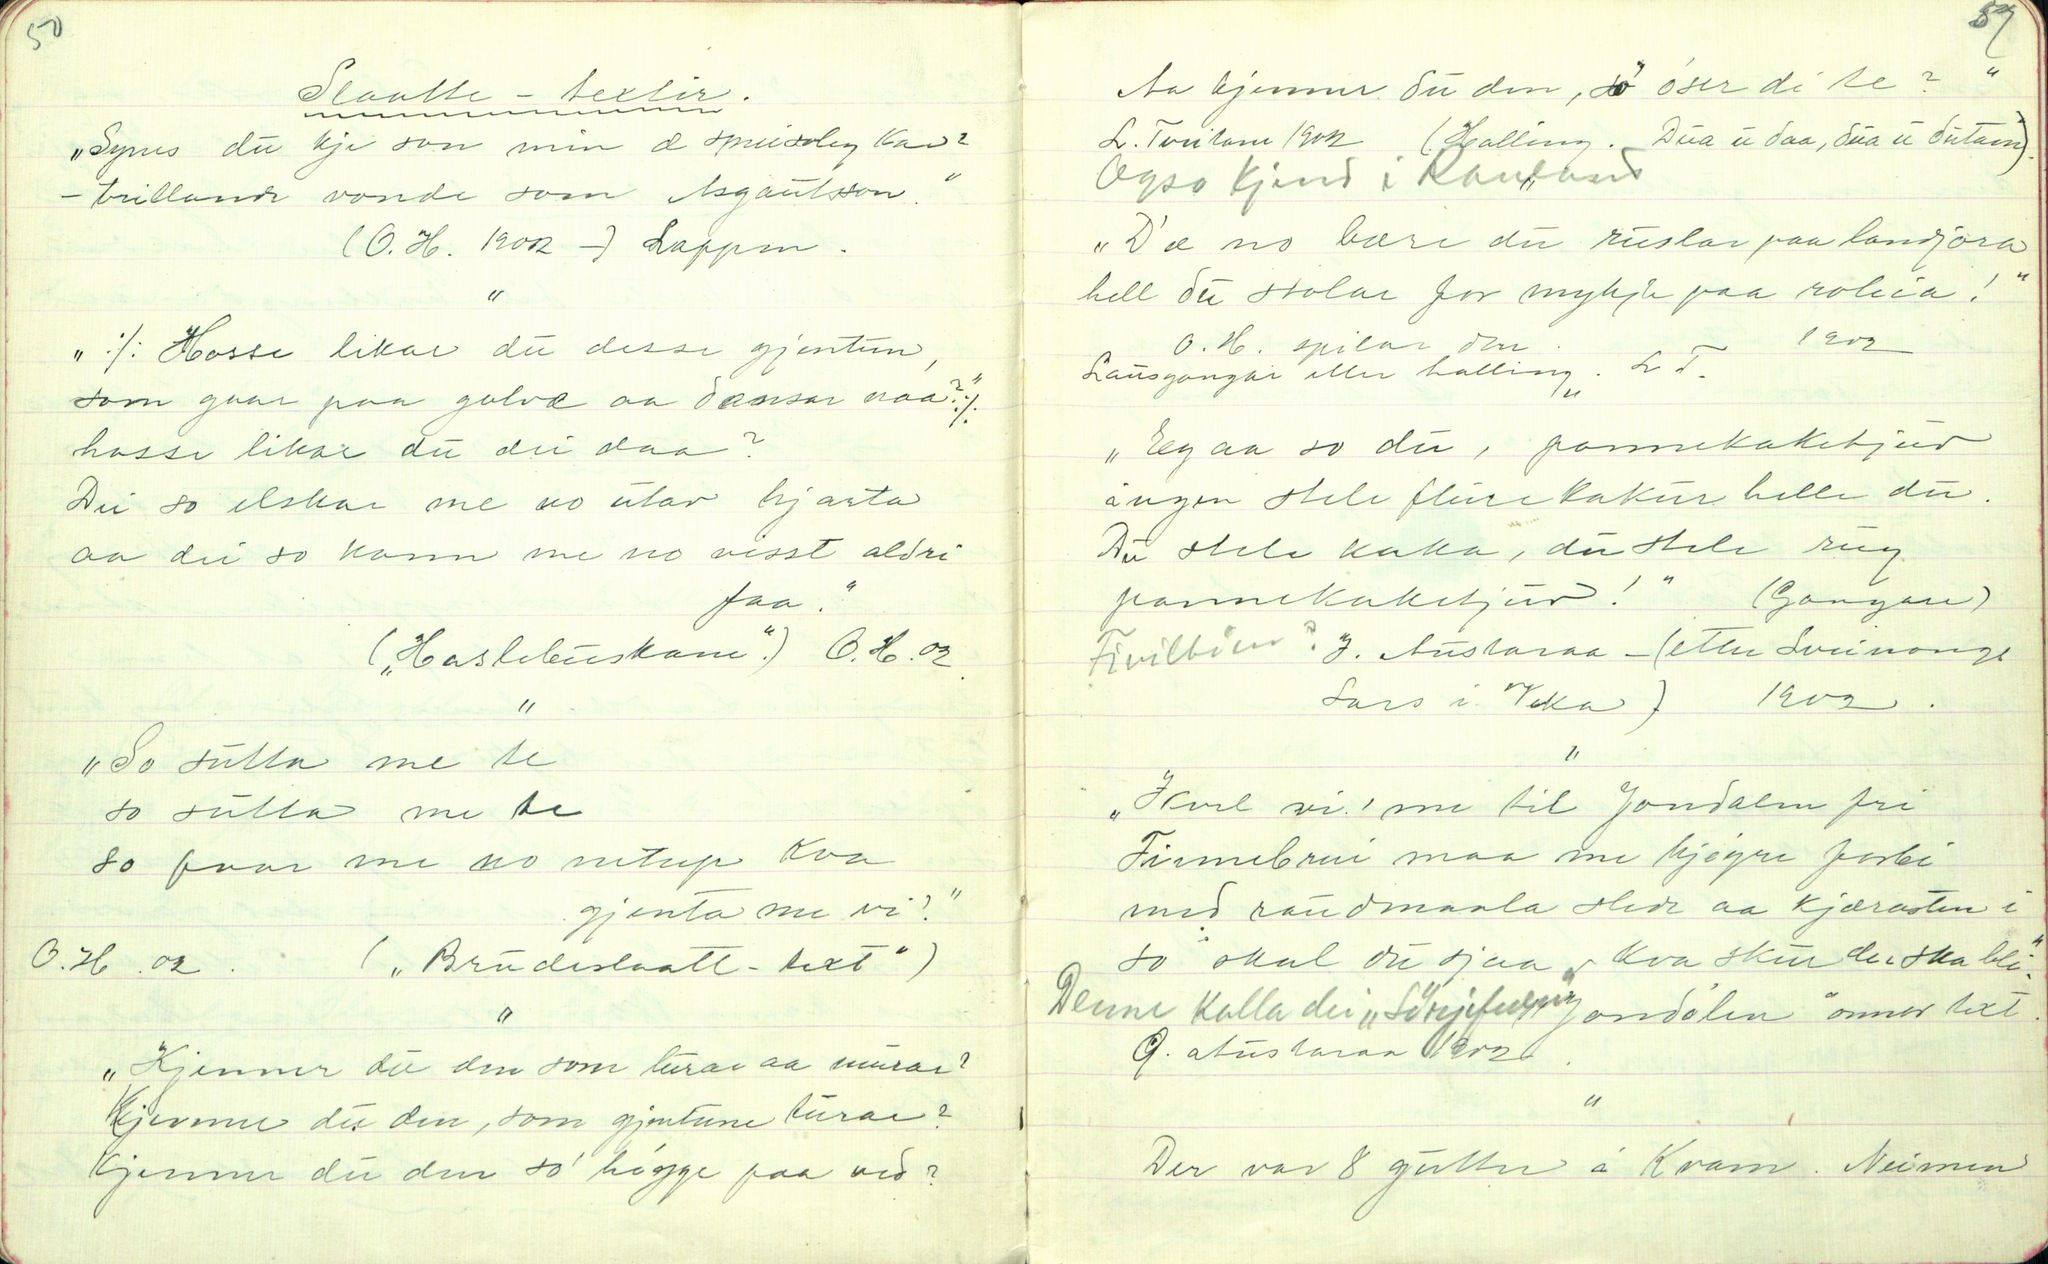 50
Slaatte-textir.
„Synes du kje son min æ speisoleg kar?
– trillande vonde som Asgautsson."
(O.H. 1902 –) Lappen.
"
„ :/: Hosse likar du desse gjentun,
som gaar paa golvæ aa dansar naa?":/:
hosse likar du dei daa?
Dei so elskar me no utav hjarta
aa dei so kann me no visst aldri
faa."
(„Haslebuskane".) O.H. 02.
"
„So sulla me te
so sulla me te
so faar me no netup kva
gjenta me vi?"
O.H. 02. („Brudeslaatt-text")
"
„Kjenner du den som turar aa murar?
Kjenner du den, som gjentune lurar?
Kjenner du den so' högge paa ved?
57
Aa kjenner du den, so' öser di te?"
L. Tveitane 1902 (Halling. Dua u daa, dua u dutann).
Ogso kjend i Rauland
"
„D'æ no bære du ruslar paa landjora
hell du stolar for mykje paa roleia!"
O.H. spelar den. 1902
Lausgangar eller halling. L.T.
"
„Eg aa so du, pannekaketjuv
ingen stele fleire kakur helle du.
Du stele kaka, du stele rug
pannekaketjuv!" (Gangar)
J. Austaraa – (etter Sveinonge
Lars i Vika) 1902.
"
„Kvel vi' me til Jondalen fri
Finnebrui maa me kjöyre forbi
med raudmaala slede aa kjærasten i
so skal du sjaa, kva skur der ska bli."
Denne kalla dei „Sörgjefulen" Jondölen annar text.
G. Austaraa 1902.
"
Der var 8 gutter i Kvam. Neimen